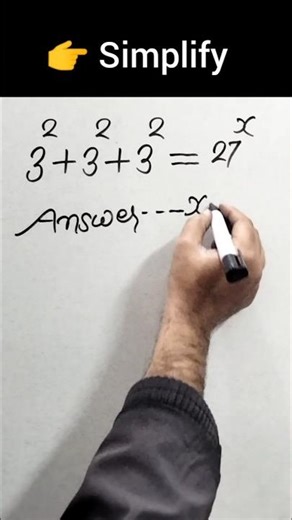 👉 Simplify
3² + 3² + 3² = 27ˣ
Answer----x